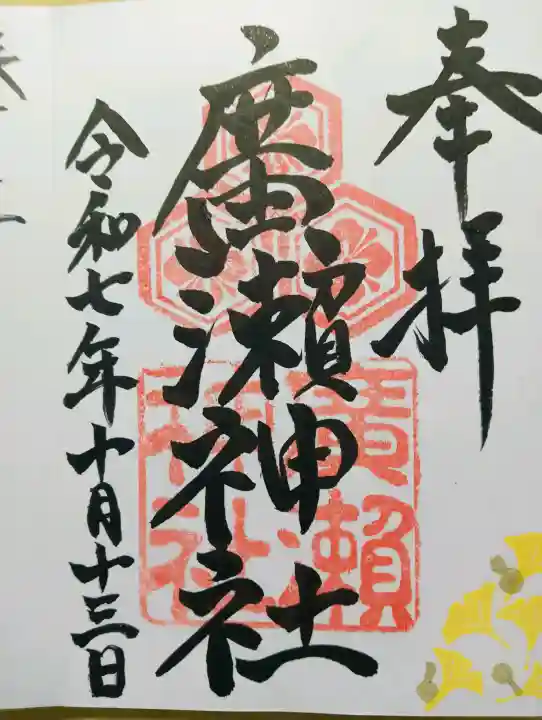 奉拝
廣瀬神社
廣瀬神社
令和七年十月十三日